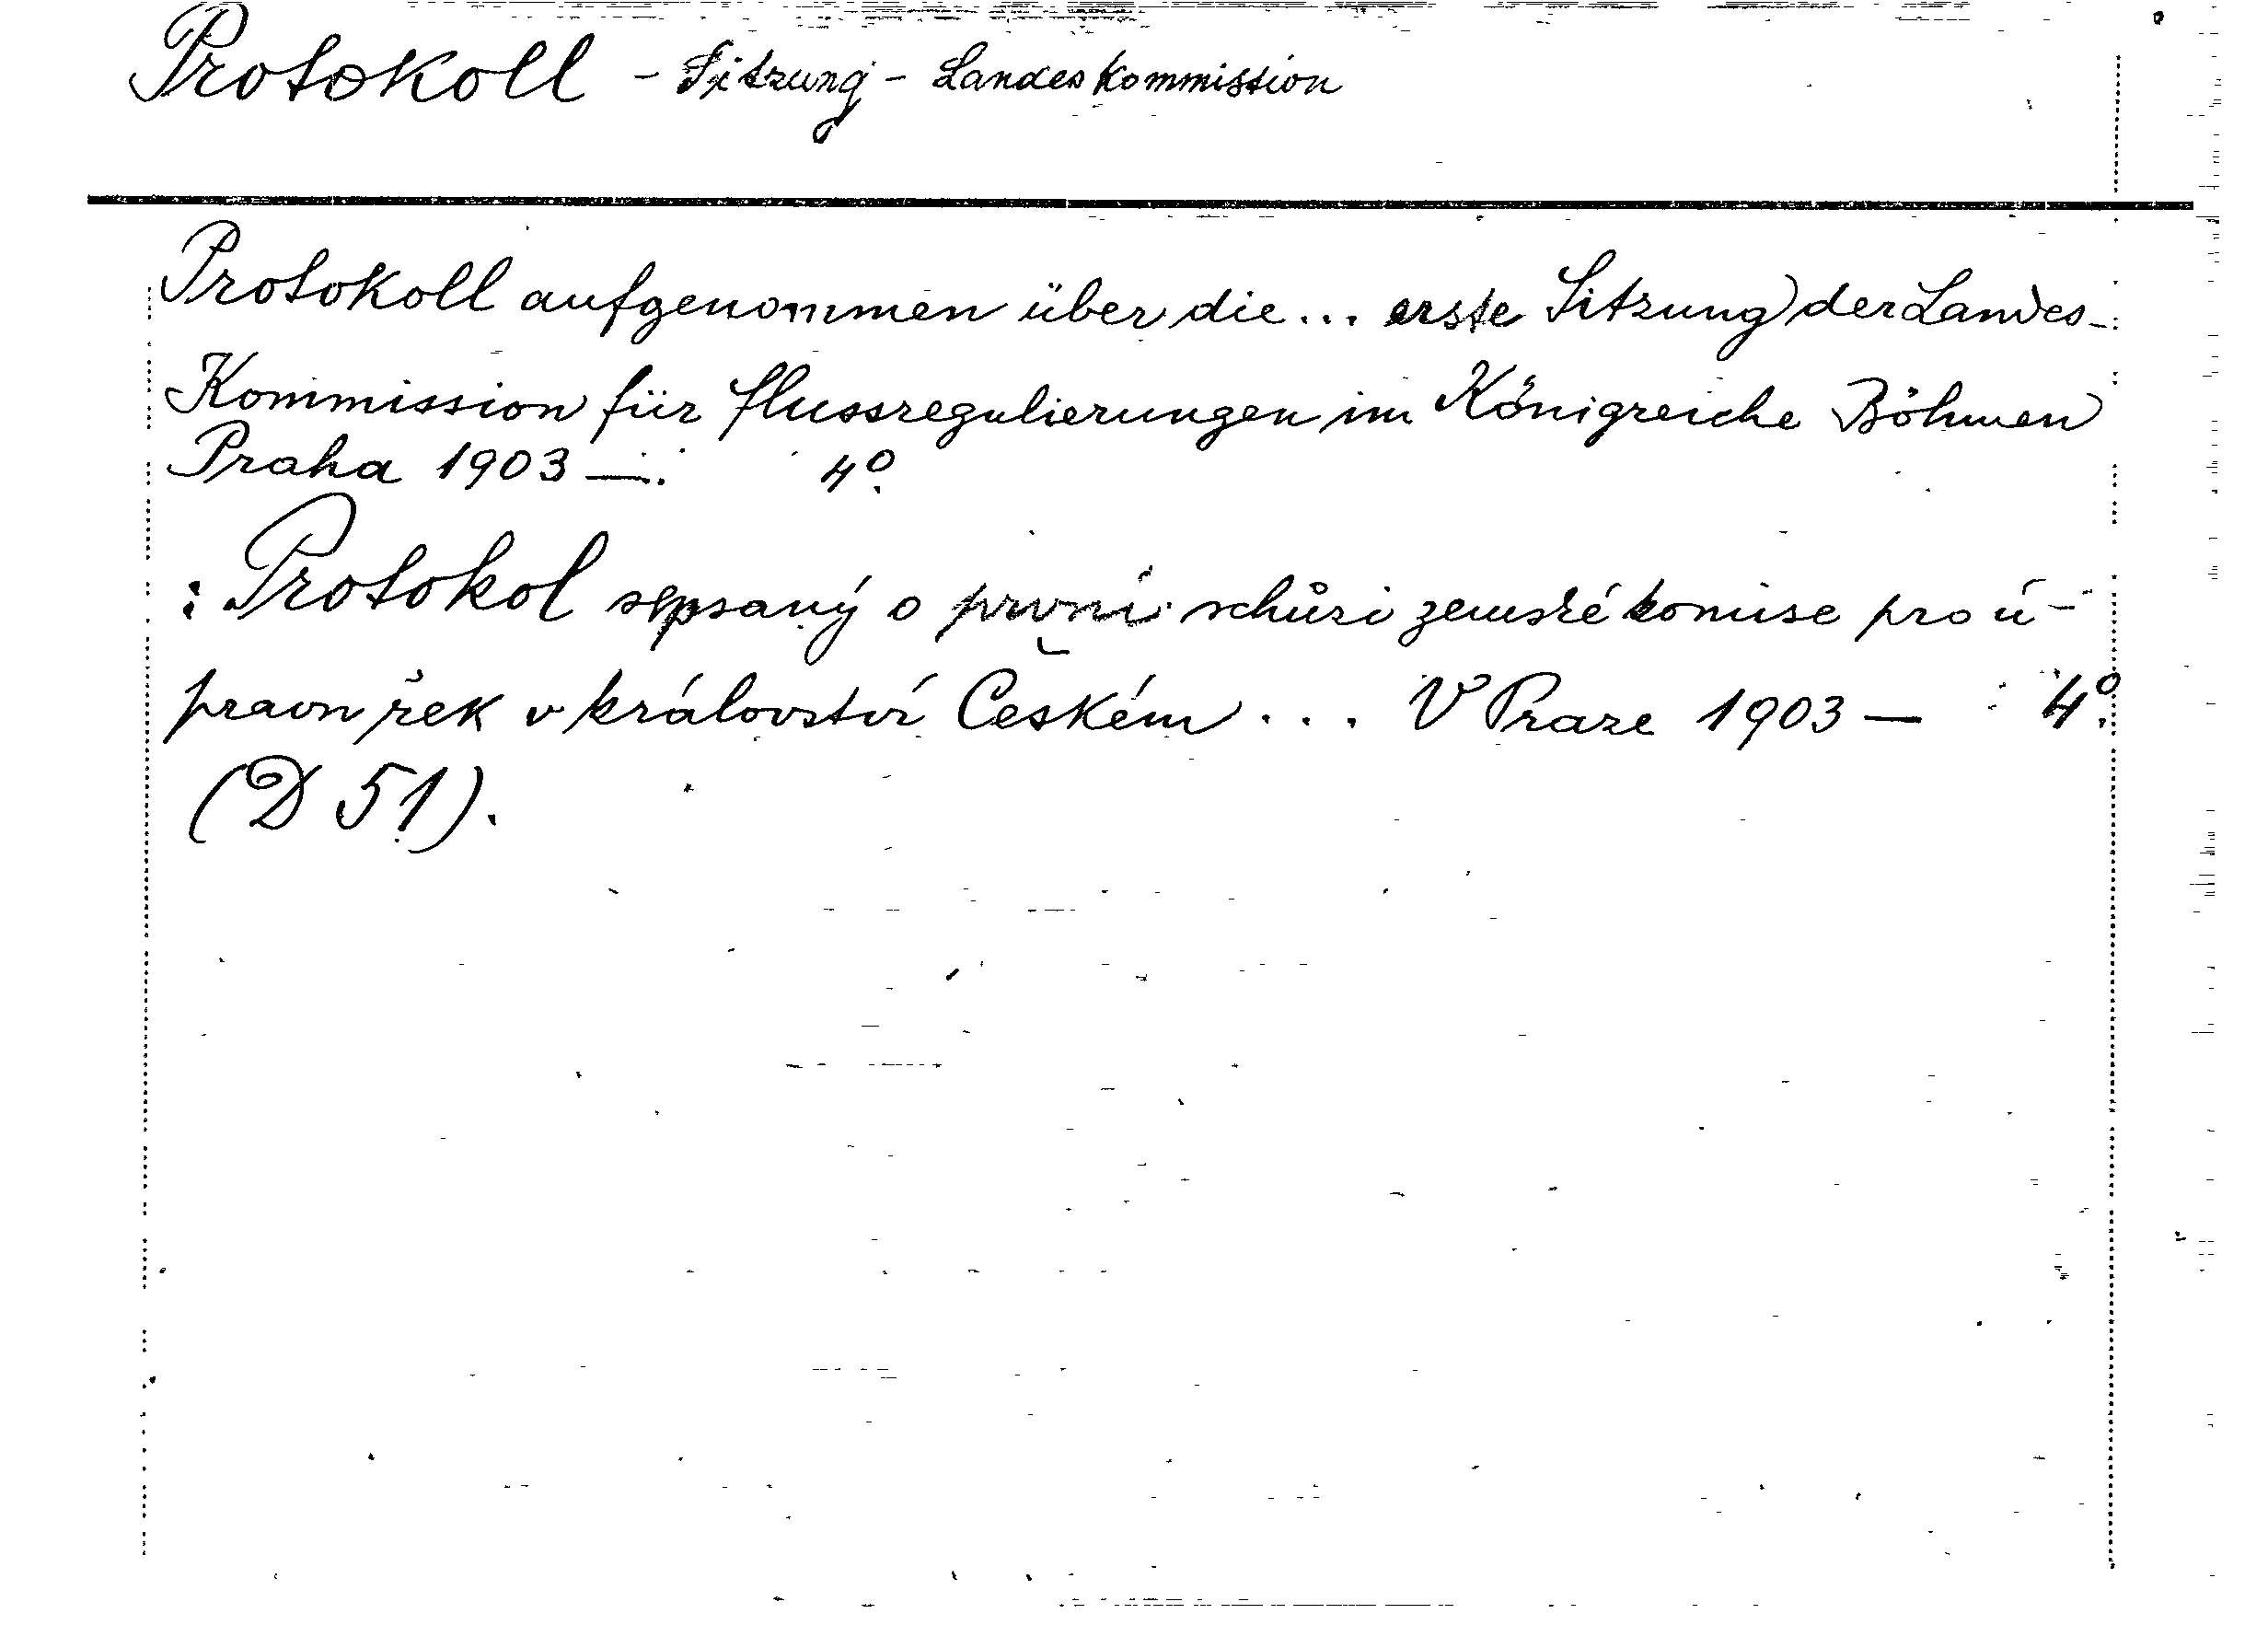 Protokoll - Sitzung - Landeskommission
Protokoll aufgenommen über die... erste Sitzung der Landes-
Kommission für Flussregulierungen im Königreiche Böhmen
Praha 1903 —. 4°.
: Protokol sepsaný o první schůzi zemské komise pro ú-
pravu řek v království Českém . . . V Praze 1903 — 4°.
(D 51).